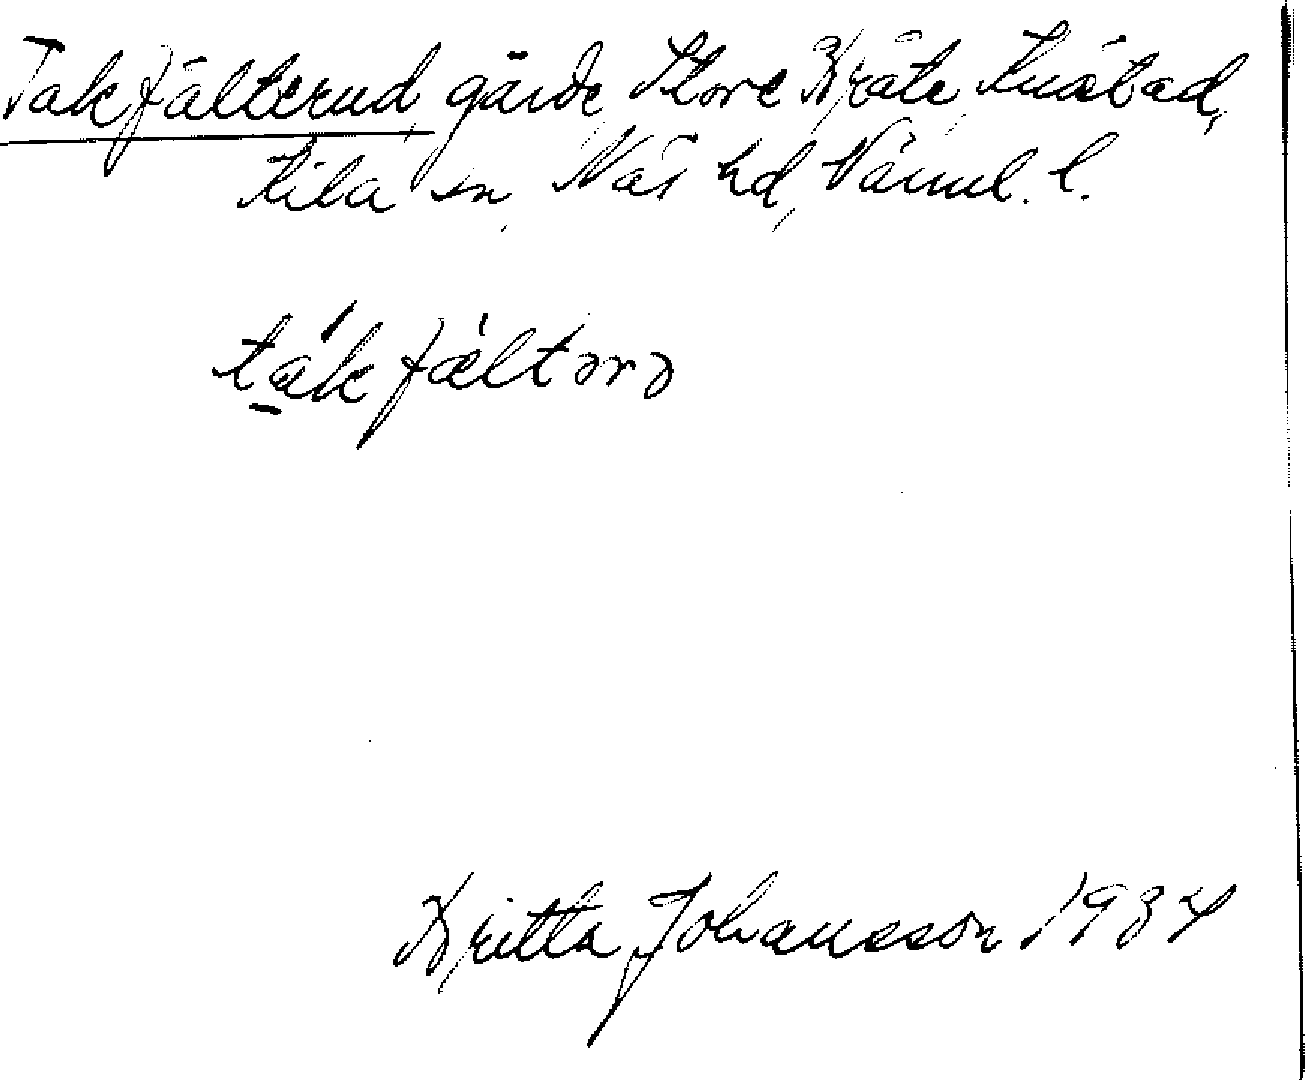 Takfälterud, gärde, Store Bråte, Knåstad,
Kila sn, Näs hd, Värml. l.
tákfæ̀ltərə
Britta Johansson 1934